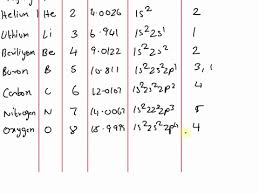 Helium He 2 4.0026 1s² 2
Lithium Li 3 6.941 1s²2s¹ 1
Beriliyon Be 4 9.0122 1s²2s² 2
Boron B 5 10.811 1s²2s²2p¹ 3,
Carbon C 6 12.0107 1s²2s²2p² 4
Nitrogen N 7 14.0067 1s²2s²2p³ 5
Oxygen O 8 15.9994 1s²2s²2p⁴ 4